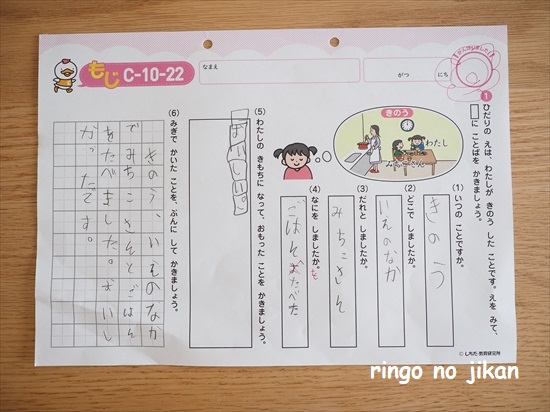 もじ C-10-22
なまえ
がつ にち
がんばりました！
1 ひだりの えは、わたしが きのう した ことです。えを みて、
□に ことばを かきましょう。
きのう
わたし
みちこさん
(1) いつの ことですか。
きのう
(2) どこで しましたか。
いえのなか
(3) だれと しましたか。
みちこさん
(4) なにを しましたか。
ごはん、をたべた
を
(5) わたしの きもちに なって、おもった ことを かきましょう。
おいしい。
(6) みぎで かいた ことを、ぶんに して かきましょう。
きのう、いえのなか
でみちこさんとごはん
をたべました。おいし
かったです。
© しちだ・教育研究所
ringo no jikan